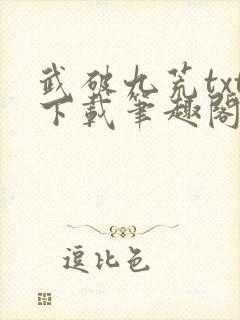 武破九荒txt
下載筆趣閣
逗比色